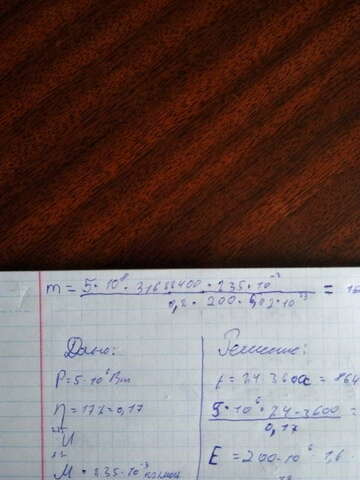 m = 5 · 10⁸ · 31622400 · 235 · 10⁻³ / 0,2 · 200 · 6,02 · 10²³ =
Дано:
P = 5 · 10⁶ Вт
η = 17% = 0,17
U
M = 235 · 10⁻³ кг/моль
Решение:
t = 24 · 3600с = 864
5 · 10⁶ · 24 · 3600 / 0,17 =
E = 200 · 10⁶ · 1,6 ·